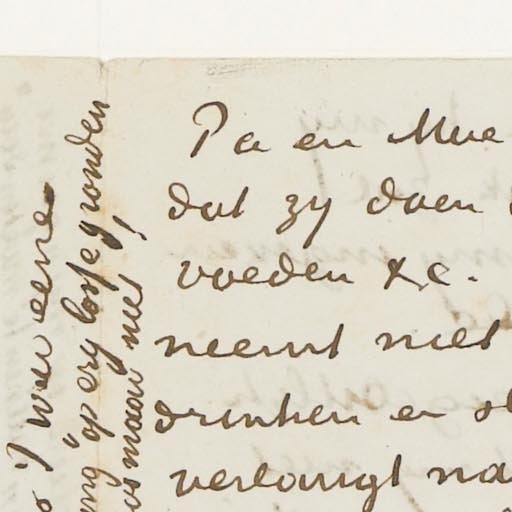 Pa en Moe
dat zy doen
voeden &c.
neemt niet
drinken en
verlangt na
't was eene
op erg losse gronden
maar niet